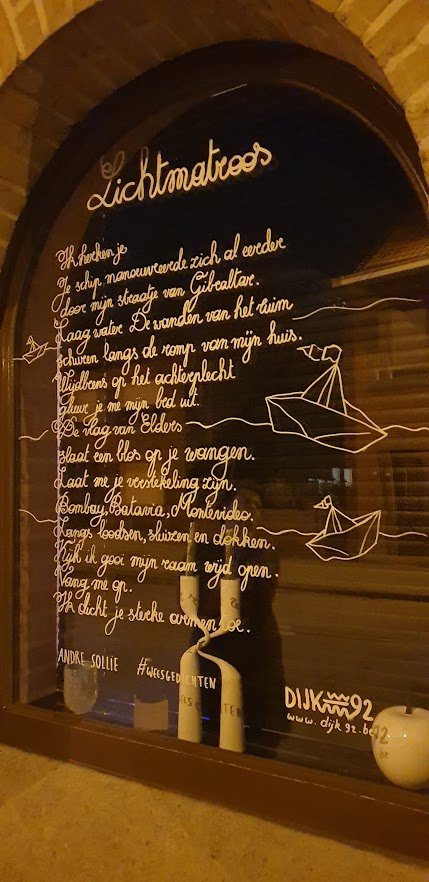 Lichtmatroos
Ik herken je
Je schip manoeuvreerde zich al eerder
door mijn straatje van Gibraltar.
Laag water. De wanden van het ruim
schuren langs de romp van mijn huis.
Wijdbeens op het achterplecht
gluur je me mijn bed uit.
De vlag van Elders
slaat een blos op je wangen.
Laat me je verstekeling zijn.
Bombay, Batavia, Montevideo.
Langs loodsen, sluizen en dokken.
Kijk ik gooi mijn raam wijd open.
Vang me op.
Ik dicht je sterke armen toe.
ANDRE SOLLIE #WEESGEDICHTEN
DIJK 92
www.dijk92.be